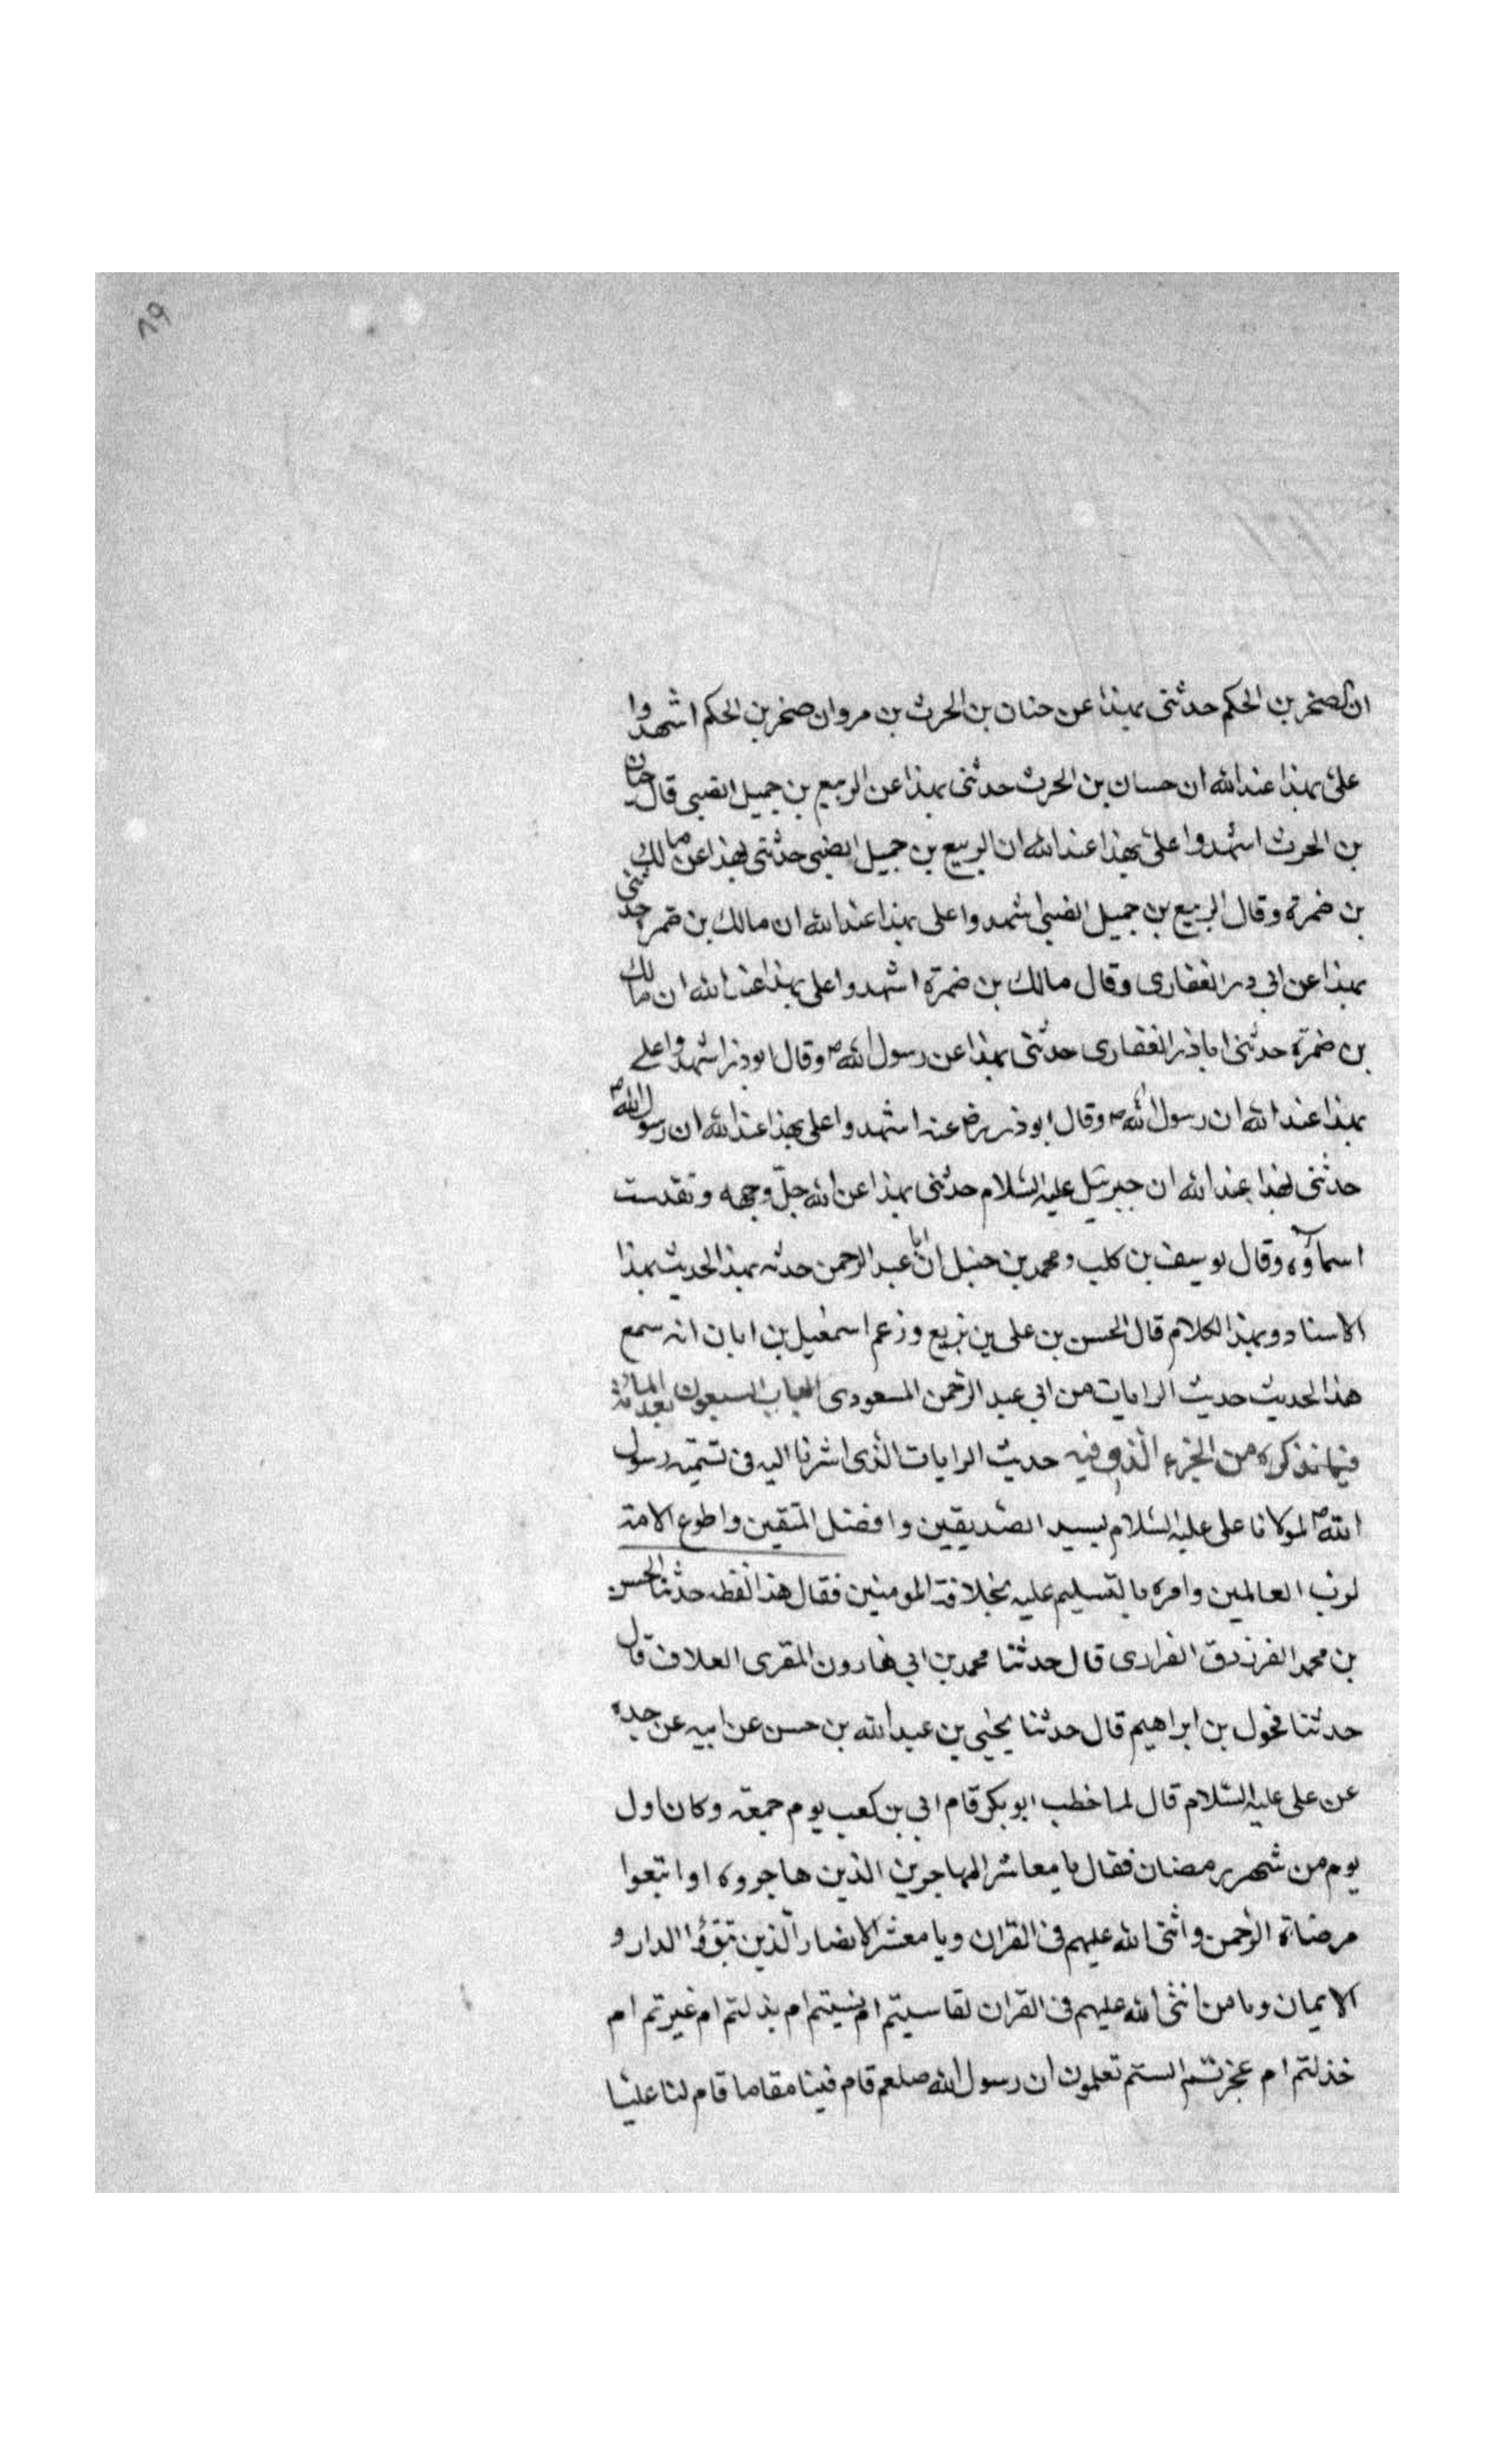 ٨٩
ان صخر بن الحكم حدثنى بهذا عن حنان بن الحرث بن مروان صخر بن الحكم اشهدوا
على بهذا عند الله ان حسان بن الحرث حدثنى بهذا عن الربيع بن جميل الضبى قال حنان
بن الحرث اشهدوا على بهذا عند الله ان الربيع بن جميل الضبى حدثنى بهذا عن مالك
بن ضمرة وقال الربيع بن جميل الضبى اشهدوا على بهذا عند الله ان مالك بن ضمرة حدثنى
بهذا عن ابى ذر الغفارى وقال مالك بن ضمرة اشهدوا على بهذا عند الله ان مالك
بن ضمرة حدثنى اباذر الغفارى حدثنى بهذا عن رسول الله ص وقال ابوذر اشهدوا على
بهذا عند الله ان رسول الله ص وقال ابوذر رض عنه اشهدوا على بهذا عند الله ان رسول الله ص
حدثنى بهذا عند الله ان جبرئيل عليه السلام حدثنى بهذا عن الله جلّ وجهه وتقدست
اسماؤه وقال يوسف بن كليب ومحمد بن حنبل انّ ابا عبد الرحمن حدثه بهذا الحديث بهذا
الاسناد وبهذا الكلام قال الحسن بن على بن بزيع وزعم اسمعيل بن ابان انه سمع
هذا الحديث حديث الرايات من ابى عبد الرحمن المسعودى الباب السبعون بعد المائة
فيما نذكره من الجزء الذى فيه حديث الرايات الذى اشرنا اليه فى تسميته رسول
الله ص لمولانا على عليه السلام بسيد الصديقين وافضل المتقين واطوع الامة
لرب العالمين وامره بالتسليم عليه بخلافة المومنين فقال هذا لفظه حدثنا الحسن
بن محمد الفرزدق الفزارى قال حدثنا محمد بن ابى هارون المقرى العلاف قال
حدثنا مخول بن ابراهيم قال حدثنا يحيى بن عبد الله بن حسن عن ابيه عن جده
عن على عليه السلام قال لما خطب ابو بكر قام ابى بن كعب يوم جمعة وكان اول
يوم من شهر رمضان فقال يا معاشر المهاجرين الذين هاجروه او اتبعوا
مرضاة الرحمن واثنى الله عليهم فى القران ويا معشر الانصار الذين تبوّؤا الدار و
الايمان ويا من اثنى الله عليهم فى القران تناسيتم ام نسيتم ام بدلتم ام غيرتم ام
خذلتم ام عجزتم الستم تعلمون ان رسول الله صلعم قام فينا مقاما قام لنا عليّا